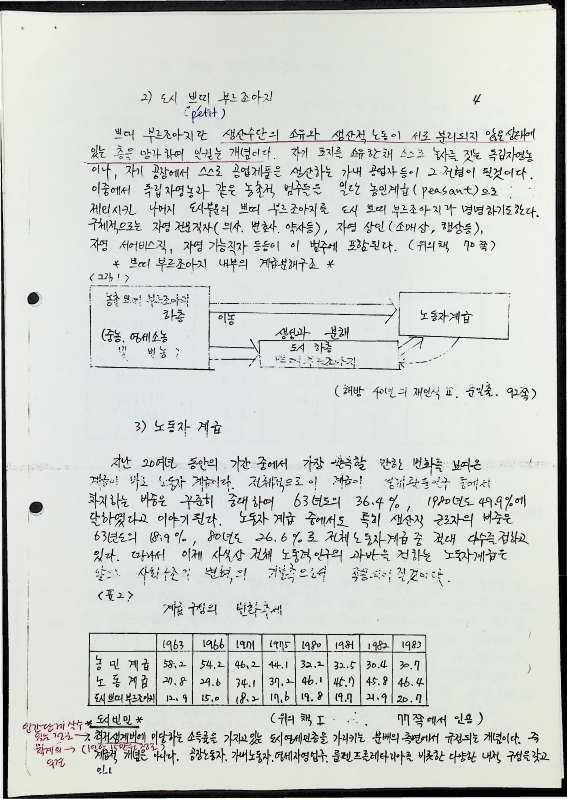 2) 도시 쁘띠 부르조아지 4
(petit)
쁘띠 부르조아지란 생산수단의 소유와 생산적 노동이 서로 분리되지 않은 상태에
있는 층을 망라하여 일컫는 개념이다. 자기 토지를 소유한채 스스로 농사를 짓는 독립자영농
이나, 자기 공장에서 스스로 공업제품을 생산하는 가내 공업자 등이 그 전형이 될것이다.
이중에서 독립자영농과 같은 농촌적 범주들은 일단 농민계급(peasant)으로
제외시킨 나머지 도시부문의 쁘띠 부르조아지를 도시 쁘띠 부르조아지라 명명하기도한다.
구체적으로는 자영 전문직자(의사, 변호사, 약사등), 자영 상인(소매상, 행상등),
자영 서어비스직, 자영 기능직자 등등이 이 범주에 포함된다. (위의책 70쪽)
* 쁘띠 부르조아지 내부의 계급분해구조 *
<그림1>
농촌 쁘띠 부르조아지
하층
(중농, 영세소농
및 빈농)
이농
생성과 분해
도시 하층
쁘띠 부르조아지
노동자계급
(해방 40년의 재인식 II. 92쪽)
3) 노동자 계급
지난 20여년 동안의 기간 중에서 가장 괄목할 만한 변화를 보여온
계급이 바로 노동자 계급이다. 전체적으로 이 계급이 인구 중에서
차지하는 비중은 꾸준히 증대하여 63년도의 36.4%, 1980년도 49.9%에
달하였다고 이야기 된다. 노동자 계급 중에서도 특히 생산직 근로자의 비중은
63년도의 18.9%, 80년도 26.6%로 전체 노동자계급 중 절대 다수를 점하고
있다. 따라서 이제 사실상 전체 노동력인구의 과반을 점하는 노동자계급은
앞으로 사회구조적 변혁의
<표2>
계급 구성의 변화추세
1963 1966 1971 1975 1980 1981 1982 1983
농민계급 58.2 54.2 46.2 44.1 32.2 32.5 30.4 30.7
노동계급 27.8 29.6 34.1 37.2 46.1 45.7 45.8 46.4
도시쁘띠부르조아지 12.9 15.0 18.2 17.6 19.8 19.7 21.9 20.7
* 도시빈민 * (위의 책 I 77쪽에서 인용)
최저생계비에 미달하는 소득률을 가지고 있는 도시영세민층을 가리키는 분배의 측면에서 규정되는 개념이다. 즉
계급적 개념은 아니다. 공장노동자, 가내노동자, 영세자영업주, 룸펜프롤레타리아를 비롯한 다양한 내적 구성을갖고
있다